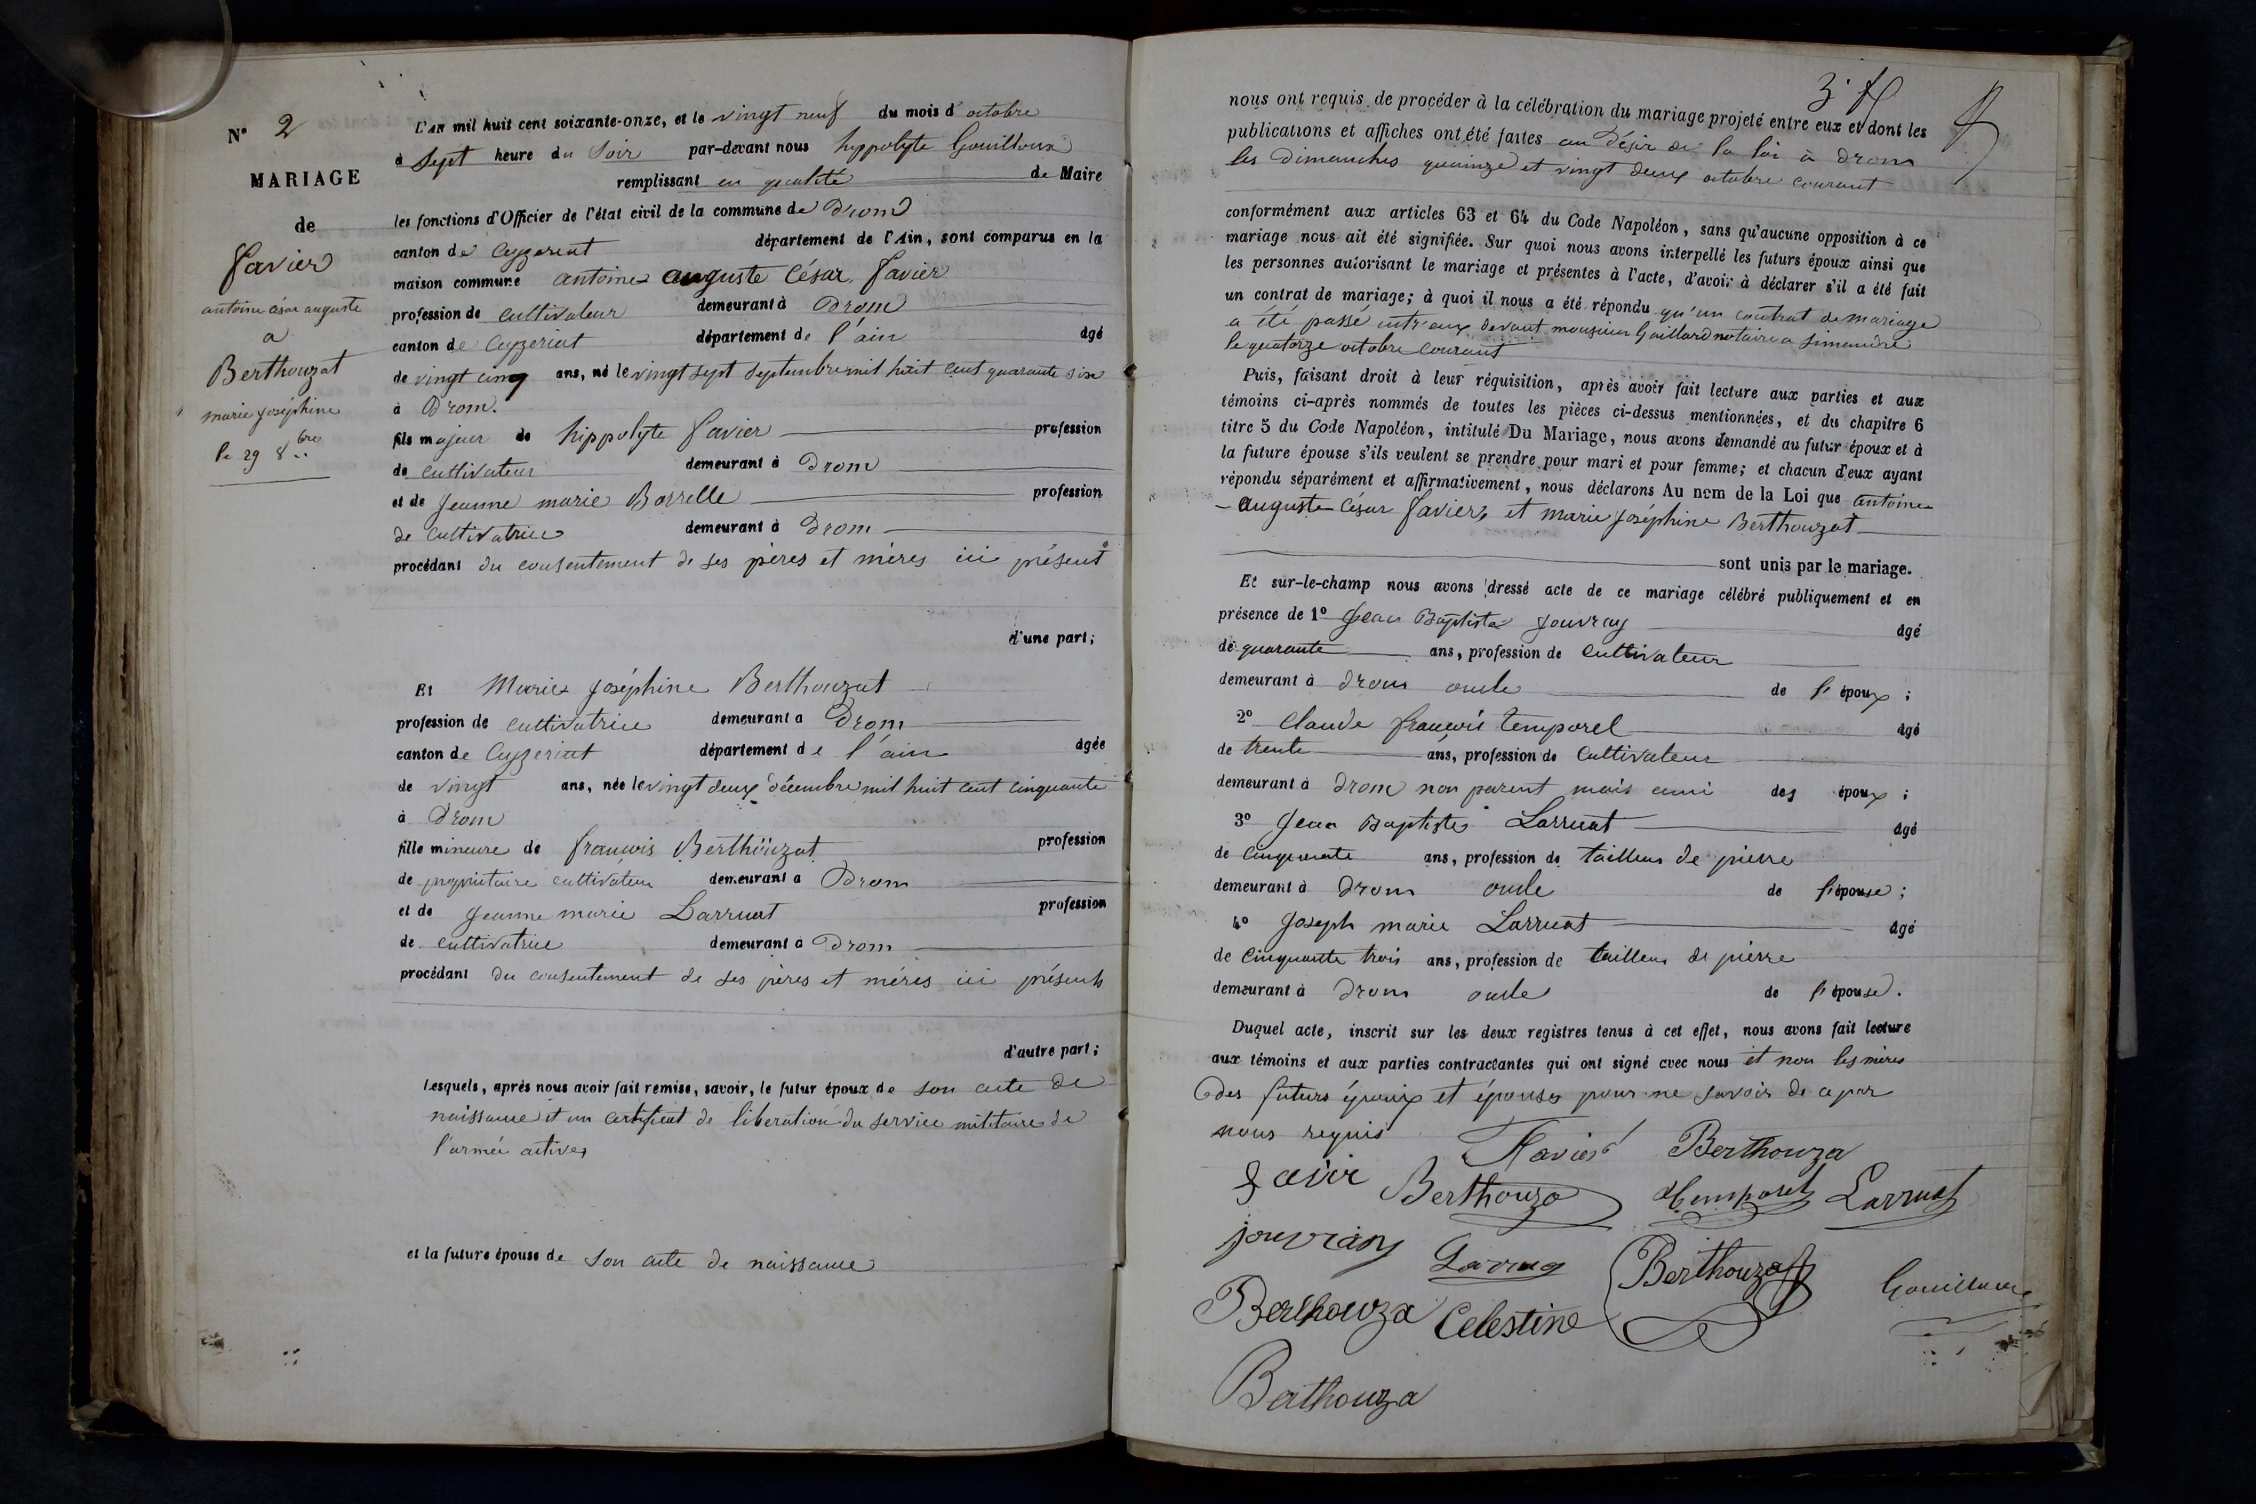 N° 2
MARIAGE
de
Favier
antoine césar auguste
a
Berthouzat
marie joséphine
le 29 8bre
L'an mil huit cent soixante-onze, et le vingt neuf du mois d'octobre
à sept heure du soir par-devant nous hyppolyte Gouilloux
remplissant en qualité de Maire
les fonctions d'Officier de l'état civil de la commune de Drom
canton de Ceyzeriat département de l'Ain, sont comparus en la
maison commune antoine auguste César Favier
profession de cultivateur demeurant à Drom
canton de Ceyzeriat département de l'ain âgé
de vingt cinq ans, né le vingt sept septembre mil huit cent quarante six
à Drom.
fils majeur de hippolyte Favier profession
de cultivateur demeurant à Drom
et de Jeanne marie Borrelle profession
de cultivatrice demeurant à Drom
procédant du consentement de ses pères et mères ici présent
d'une part;
Et Marie Joséphine Berthouzat
profession de cultivatrice demeurant à Drom
canton de Ceyzeriat département de l'ain âgée
de vingt ans, née le vingt deux décembre mil huit cent cinquante
à Drom
fille mineure de francois Berthouzat profession
de propriétaire cultivateur demeurant à Drom
et de Jeanne marie Larruat profession
de cultivatrice demeurant à Drom
procédant du consentement de ses pères et mères ici présents
d'autre part;
Lesquels, après nous avoir fait remise, savoir, le futur époux de son acte de
naissance et un certificat de liberation du service militaire de
l'armée active,
et la future épouse de son acte de naissance
nous ont requis de procéder à la célébration du mariage projeté entre eux et dont les
publications et affiches ont été faites au désir de la loi à drom
les dimanches quinze et vingt deux octobre courant
conformément aux articles 63 et 64 du Code Napoléon, sans qu'aucune opposition à ce
mariage nous ait été signifiée. Sur quoi nous avons interpellé les futurs époux ainsi que
les personnes autorisant le mariage et présentes à l'acte, d'avoir à déclarer s'il a été fait
un contrat de mariage; à quoi il nous a été répondu qu'un contrat de mariage
a été passé entr'eux devant monsieur Gaillard notaire a Simandre
le quatorze octobre courant
Puis, faisant droit à leur réquisition, après avoir fait lecture aux parties et aux
témoins ci-après nommés de toutes les pièces ci-dessus mentionnées, et du chapitre 6
titre 5 du Code Napoléon, intitulé Du Mariage, nous avons demandé au futur époux et à
la future épouse s'ils veulent se prendre pour mari et pour femme; et chacun d'eux ayant
répondu séparément et affirmativement, nous déclarons Au nom de la Loi que antoine
auguste César Favier, et marie Joséphine Berthouzat
sont unis par le mariage.
Et sur-le-champ nous avons dressé acte de ce mariage célébré publiquement et en
présence de 1° Jean Baptiste Jouvray âgé
de quarante ans, profession de cultivateur
demeurant à drom oncle de l'époux;
2° Claude francois temporel âgé
de trente ans, profession de cultivateur
demeurant à drom non parent mais ami des époux;
3° Jean Baptiste Larruat âgé
de cinquante ans, profession de tailleur de pierre
demeurant à drom oncle de l'épouse;
4° Joseph marie Larruat âgé
de cinquante trois ans, profession de tailleur de pierre
demeurant à drom oncle de l'épouse.
Duquel acte, inscrit sur les deux registres tenus à cet effet, nous avons fait lecture
aux témoins et aux parties contractantes qui ont signé avec nous et non les mères
des futurs époux et épouses pour ne savoir de ce par
nous requis
Favier Berthouza
Favier Berthouza Temporel Larruat
jouvray Berthouzat Gouilloux
Berthouza Celestine
Berthouza